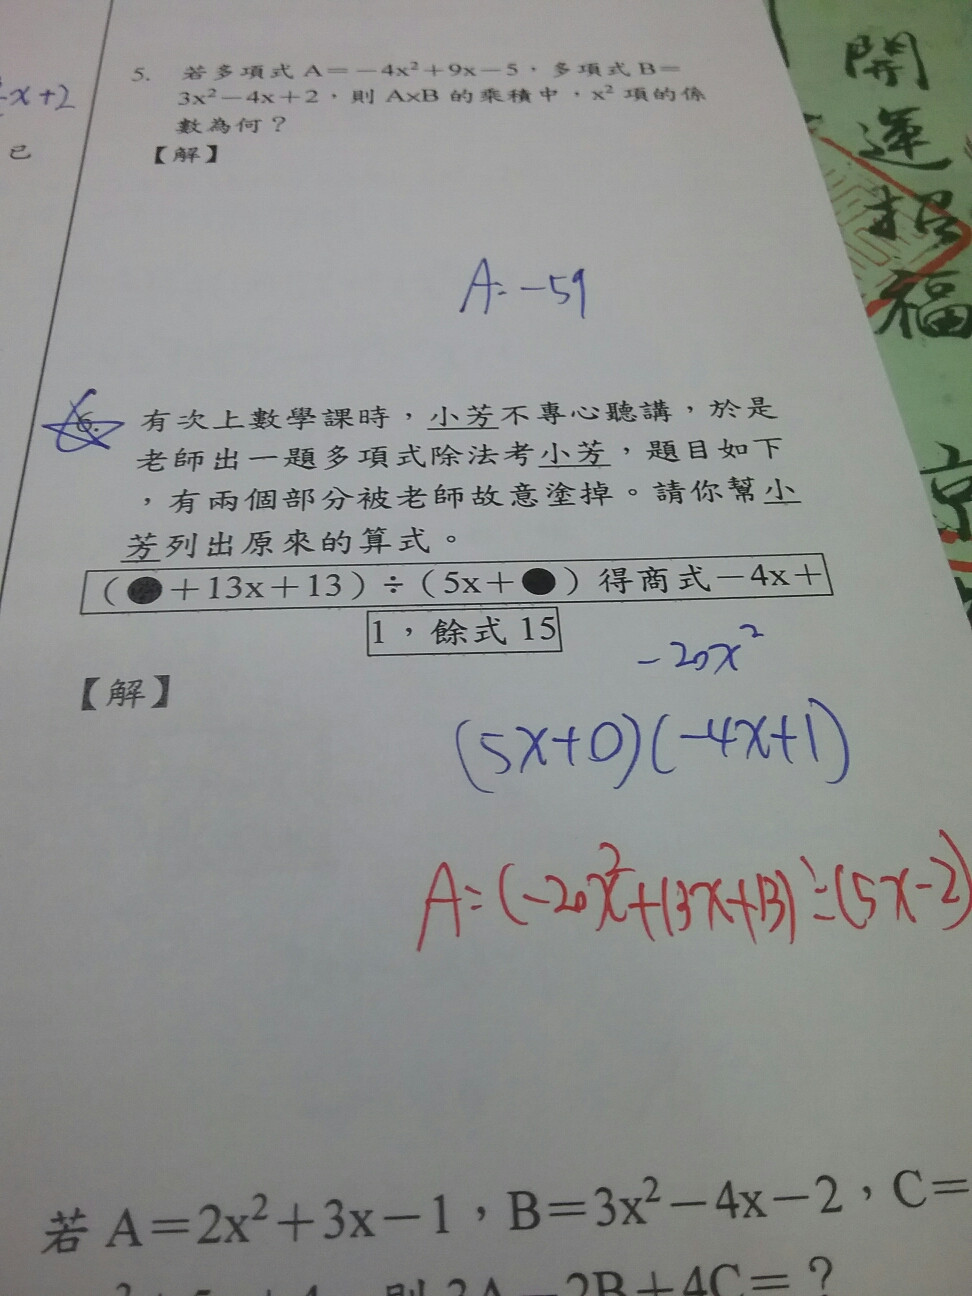 x+2
已
5. 若多項式 A＝－4x²＋9x－5，多項式 B＝
3x²－4x＋2，則 A×B 的乘積中，x² 項的係
數為何？
【解】
A=-59
6. 有次上數學課時，小芳不專心聽講，於是
老師出一題多項式除法考小芳，題目如下
，有兩個部分被老師故意塗掉。請你幫小
芳列出原來的算式。
（●＋13x＋13）÷（5x＋●）得商式－4x＋
1，餘式 15
-20x²
【解】
(5x+0)(-4x+1)
A=(-20x²+13x+13)÷(5x-2)
若 A＝2x²＋3x－1，B＝3x²－4x－2，C＝
則 3A－2B＋4C＝？
開
運
招
福
京